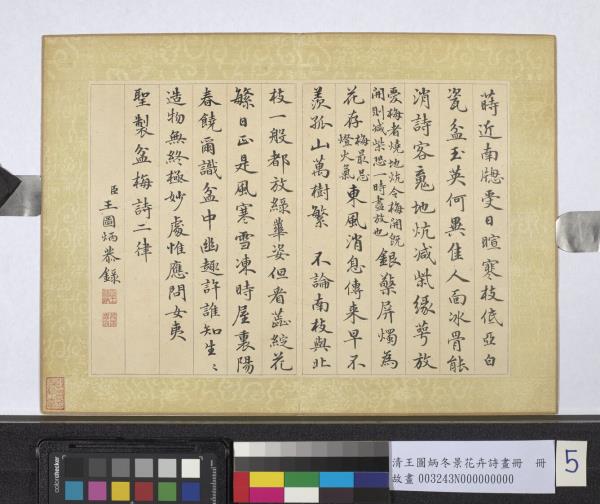 蒔近南牕受日暄寒枝低亞白
瓷盆玉英何異佳人面冰骨能
消詩客魂地炕減柴緣萼放
愛梅者燒地炕令梅開既
開則減柴恐一時盡放也
銀檠屏燭為
花存
梅最忌
燈火氣
東風消息傳来早不
羨孤山萬樹繁
不論南枝與北
枝一般都放綠蕚姿但看蕋綻花
繁日正是風寒雪凍時屋裏陽
春饒爾識盆中幽趣許誰知生〻
造物無終極妙處惟應問女夷
聖製盆梅詩二律
臣王圖炳恭錄
colorchecker
清王圖炳冬景花卉詩畫冊 冊
故畫003243N000000000
5